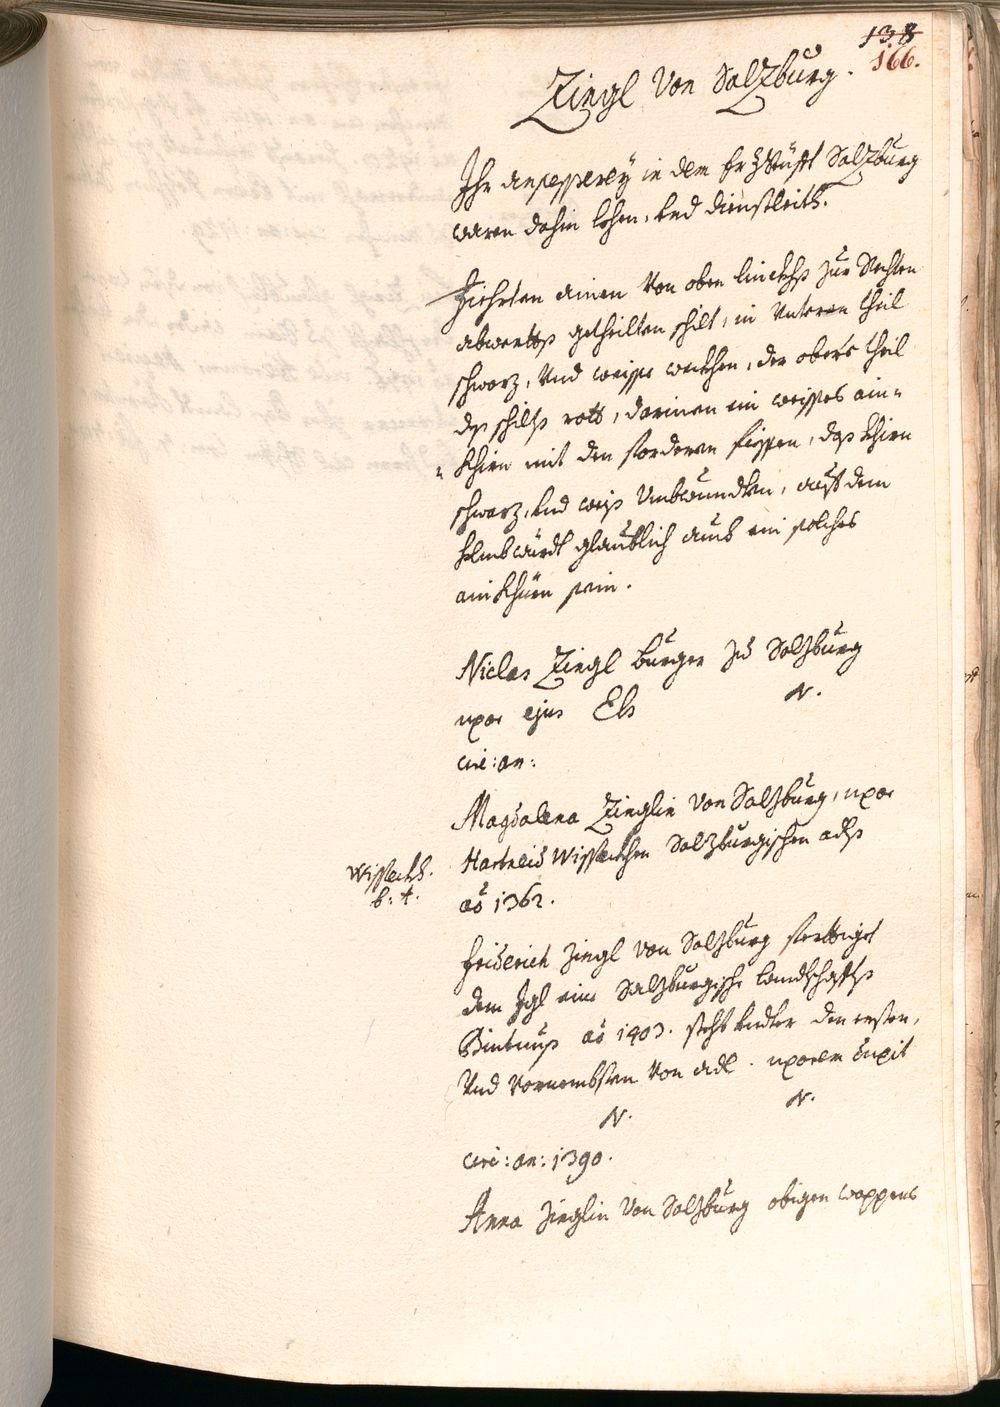 138
166.
Ziegl Von Salzburg.
Ihr ansesserey in dem Erzstüfft Salzburg
waren dahin Lehen, und dienstleith.
Fiehrten ainen Von oben linckhs zur Rechten
abwerths getheilten schilt, in Unteren theil
schwarz, Und weisse weckhen, der obere theil
des schilts roth, darinen ein weisses ain-
-khirn mit den forderen fiessen, das khirn
schwarz, und weis Umbwundten, auf dem
Helmb würdt glaublich auch ein solches
ainkhürn sein.
Niclas Ziegl burger zu Salzburg
uxor ejus Els N.
circ: an:
Magdalena Zieglin Von Salzburg, uxor
Hartneid Wisseckhen Salzburgischen adls
ao 1362.
Wisseckh.
b: t.
Friderich Ziegl Von Salzburg ferttiget
dem Igl eine Salzburgische Landschaffts
Bintnus ao 1403. steht under den ersten,
Und Vornembsten Von adl. uxorem duxit
N. N.
circ: an: 1390.
Anna Zieglin Von Salzburg obigen wappens